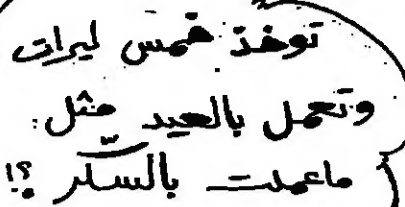 توخذ خمس ليرات
وتعمل بالعيد مثل:
ماعملت بالسكر ؟!